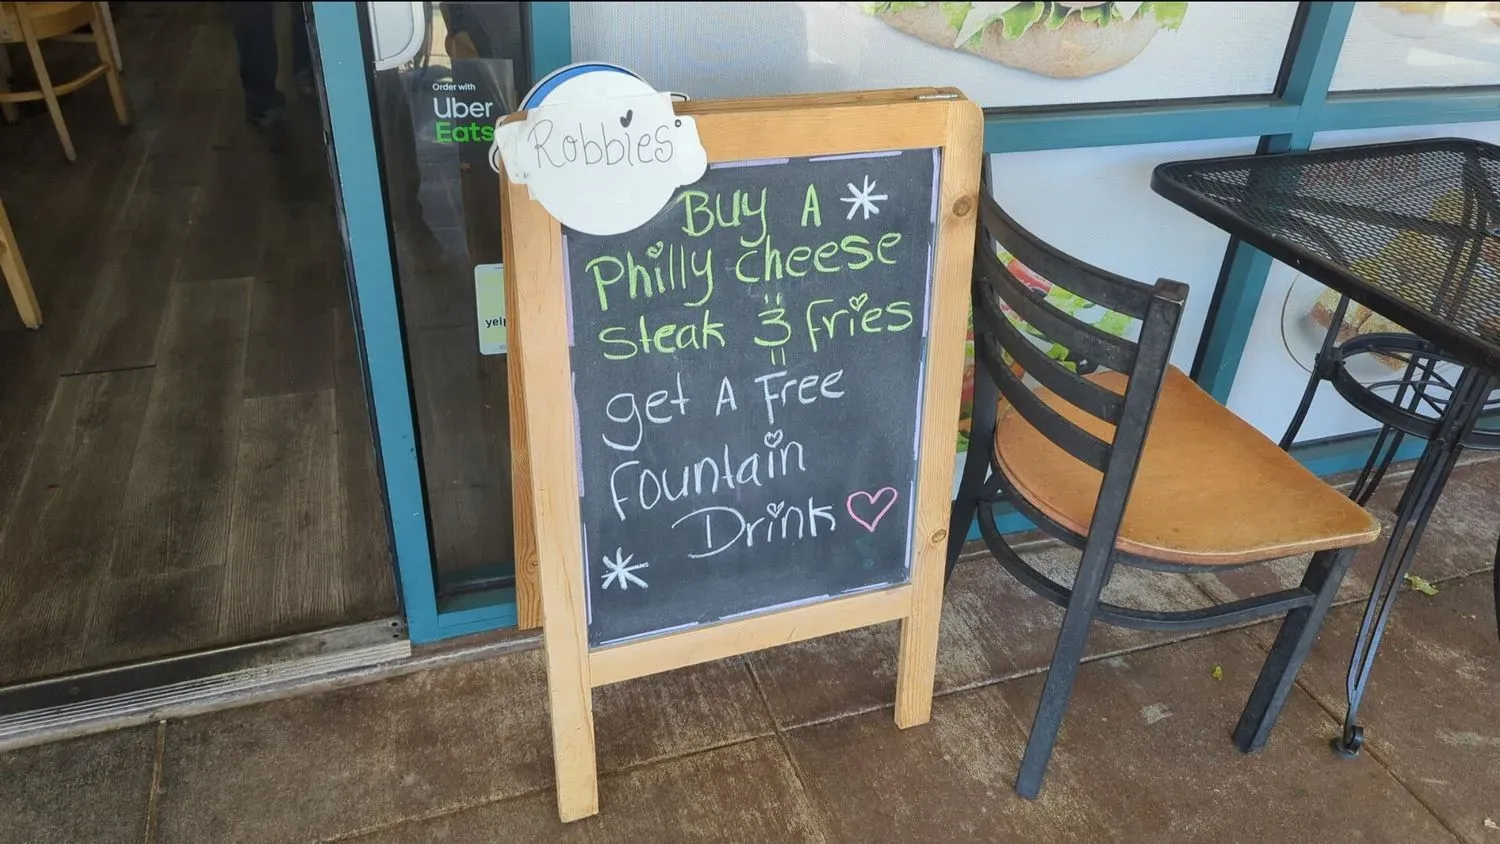 Order with
Uber
Eats
yelp
Robbies
Buy A
Philly cheese
steak & fries
get A Free
Fountain
Drink